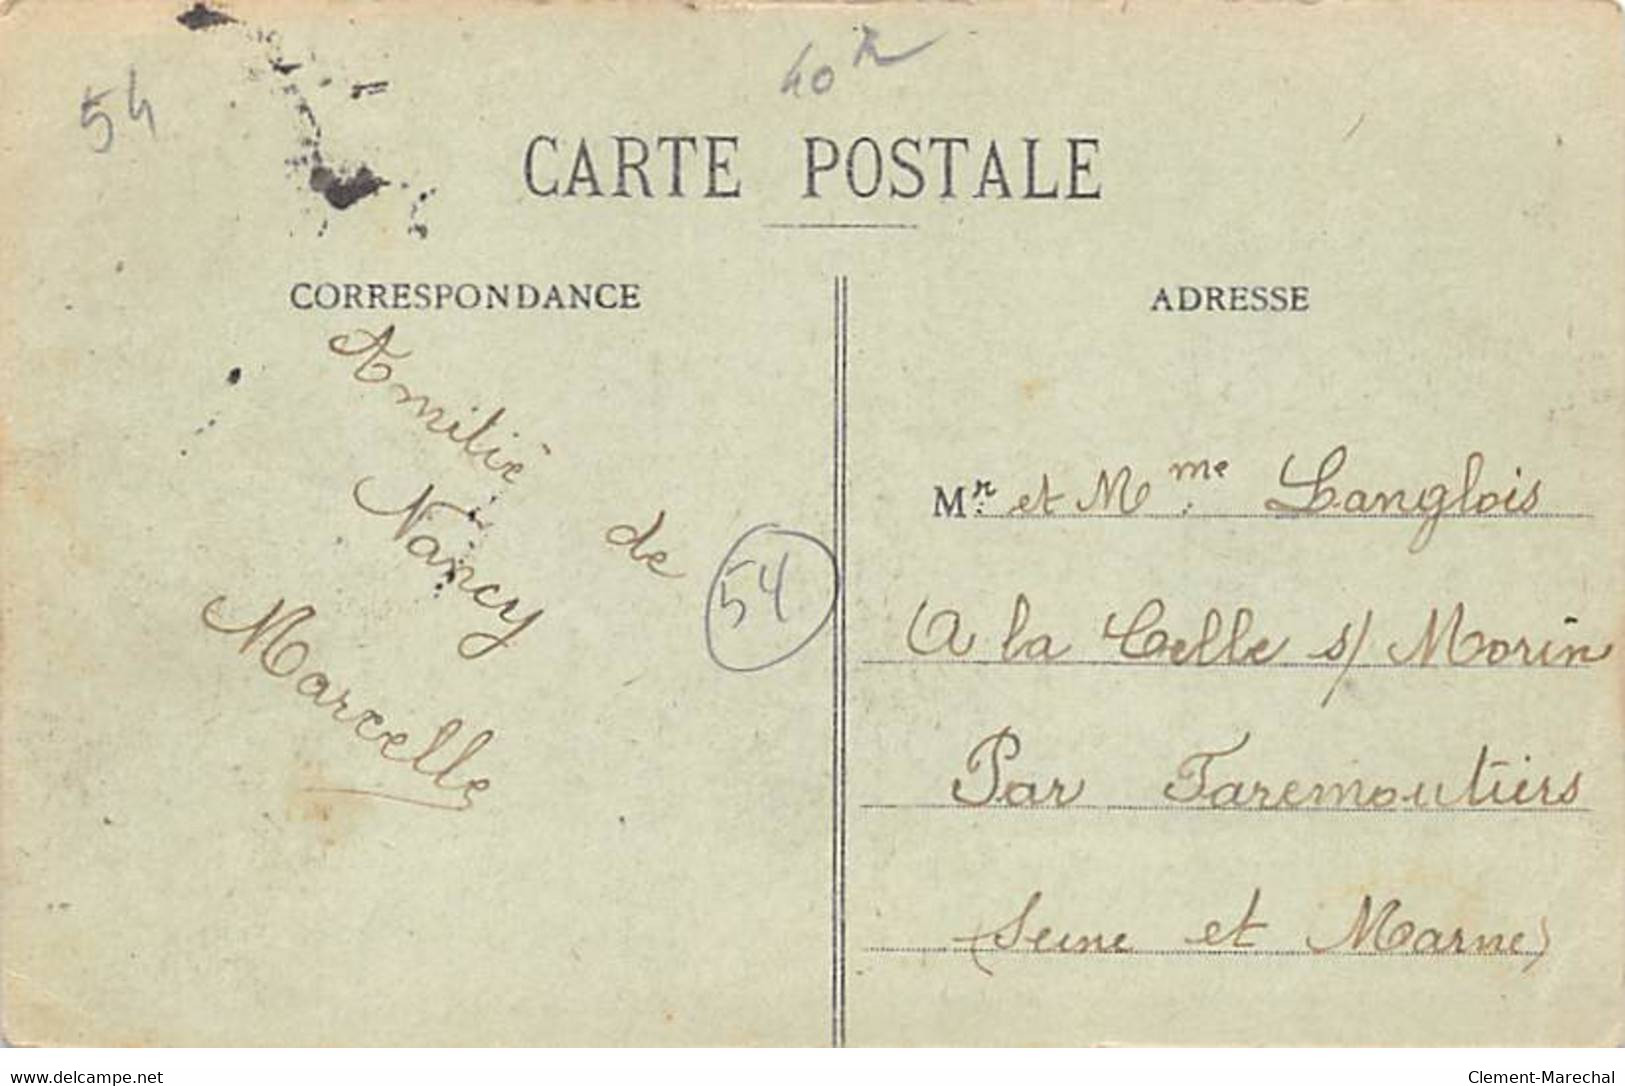 54
40
CARTE POSTALE
CORRESPONDANCE
Amitié de
Nancy
Marcelle
54
ADRESSE
Mr et Mme Langlois
A la Celle s/ Morin
Par Faremoutiers
(Seine et Marne)
www.delcampe.net
Clement-Marechal